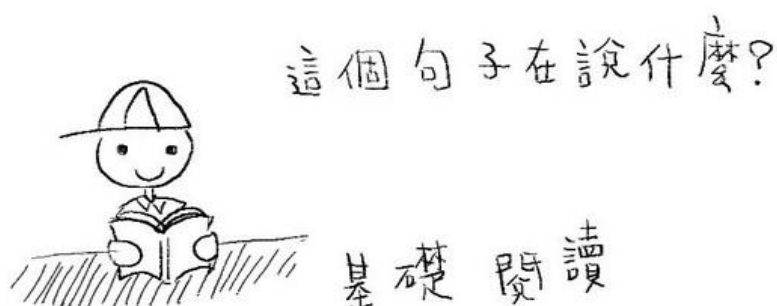 這個句子在說什麼?
基礎 閱讀